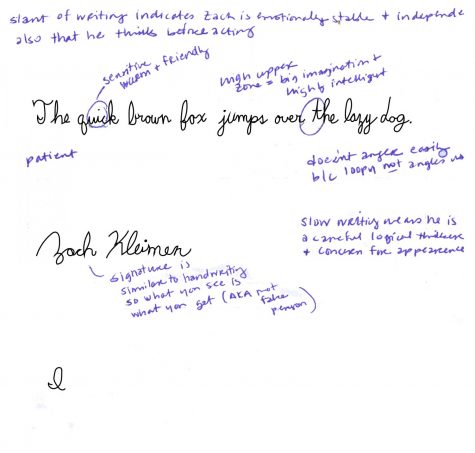 slant of writing indicates Zach is emotionally stable + independe
also that he thinks before acting
sensitive
warm + friendly
high upper
zone = big imagination +
highly intelligent
The quick brown fox jumps over the lazy dog.
patient
doesn't anger easily
b/c loopy not angles
slow writing means he is
a careful logical
+ concern for appearence
Zach Kleimen
signature is
similar to handwriting
so what you see is
what you get (AKA not
fake
person)
I